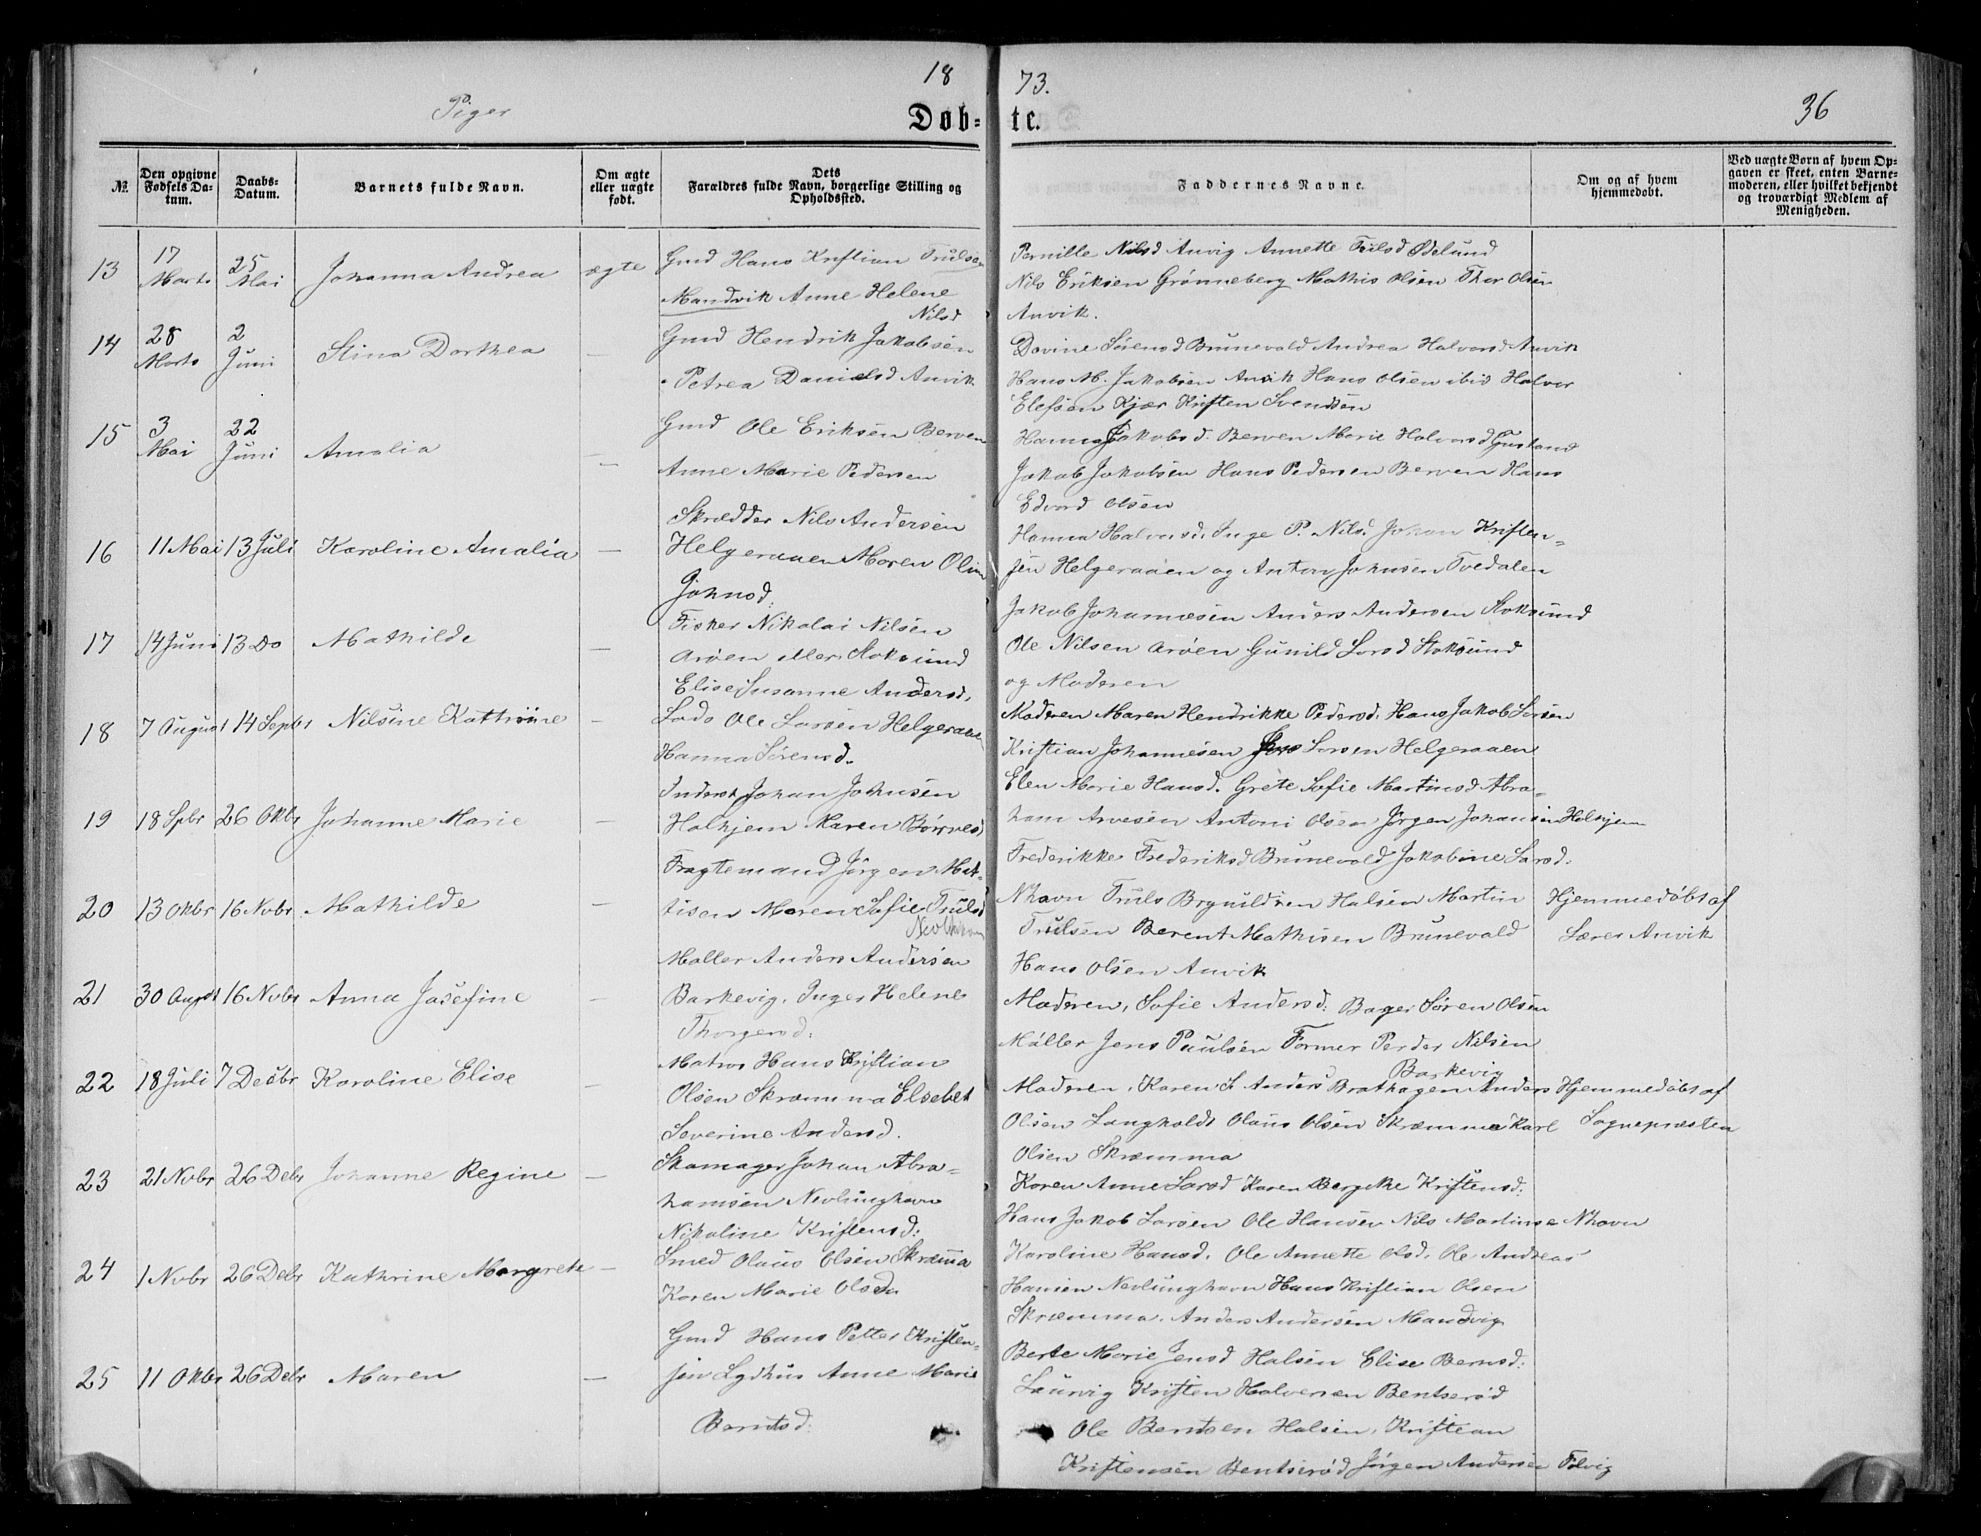 1873.
Piger
36
Døbte.
№
Den opgivne Fødsels Datum.
Daabs-Datum.
Barnets fulde Navn.
Om ægte eller uægte født.
Dets Forældres fulde Navn, borgerlige Stilling og Opholdssted.
Faddernes Navne.
Om og af hvem hjemmedøbt.
Ved uægte Børn af hvem Opgaven er skeet, enten Barnemoderen, eller hvilket bekjendt og troværdigt Medlem af Menigheden.
13 17 Marts 25 Mai Johanna Andrea ægte
Gmd Hans Kristian Trulsen
Mandvik Anne Helene
Nilsd
Pernille Nilsd Anvig Annette Ødelund
Nils Eriksen Grønneberg Mathis Olsen Thor Olsen
Anvik.
14 28 Marts 2 Juni Stina Dorthea —
Gmd Hendrik Jakobsen
Petrea Danielsd Anvik
Davine Sørensd Brunevald Andrea Halvorsd Anvik
Hans M. Jakobsen Anvik Hans Olsen ibid Halvor
Elefsen Kjær Kristen Svendsen
15 3 Mai 22 Juni Amalia —
Gmd Ole Eriksen Berven
Anne Marie Pedersen
Hanna Jakobsd. Berven Marie Halvorsd
Jakob Jakobsen Hans Pedersen Berven Hans
Edvard Olsen
16 11 Mai 13 Juli Karoline Amalia —
Skrædder Nils Andersen
Helgeraaen Maren Olina
Johnsd.
Hanna Halvorsd. Inge P. Nilsd. Johan Kristen=
sen Helgeraaen og Anton Johnsen Tvedalen
17 14 Juni 13 Do Mathilde —
Fisker Nikolai Nilsen
Arøen eller Stoksund
Elise Susanne Andersd.
Jakob Johannesen Anders Andersen Stoksund
Ole Nilsen Arøen Gunild Larsd Stoksund
og Moderen
18 7 August 14 Septbr Nilsine Kathrine —
Lods Ole Larsen Helgeraaen
Hanna Sørensd.
Moderen Maren Hendrikke Pedersd. Hans Jakob Larsen
Kristian Johannesen Jens Larsen Helgeraaen
19 18 Spbr 26 Okbr Johanne Marie —
Inderst Johan Johnsen
Halhjem Karen
Elen Marie Hansd. Grete Sofie Martinsd Abra=
ham Arvesen Antoni Olsen Jørgen Johansen Halhjem
20 13 Okbr 16 Nvbr Mathilde —
Fragtemand Jørgen Mat-
tisen Maren Sofie Trulsd
Frederikke Frederiksd Brunevald Jakobine Larsd.
Nhavn Truls Brynildsen Halsen Martin
Trulsen Berent Mathisen Brunevald
Hans Olsen Anvik
Hjemmedøbt af
Lærer Anvik
21 30 Augst 16 Nvbr Anna Josefine —
Møller Anders Andersen
Barkevig, Inger Helene
Thorgersd.
Moderen, Sofie Andersd. Bager Søren Olsen
Møller Jens Paulsen Former Perder Nilsen
Barkevig
22 18 Juli 7 Decbr Karoline Elise —
Matros Hans Kristian
Olsen Skræmma Elsebet
Severine Andersd.
Moderen, Karen S. Andersd Brathagen Anders
Olsen Langholdt Olaus Olsen Skræmma Karl
Olsen Skræmma
Hjemmedøbt af
Sognepræsten
23 21 Nvbr 26 Debr Johanne Regine —
Skomager Johan Abra=
hamsen Nevlunghavn
Nikoline Kristensd.
Karen Anne Larsd Karen Bergitte Kristensd.
Hans Jakob Larsen Ole Hansen Nils Martinse Nhavn
24 1 Nvbr 26 Debr Kathrine Margrete —
Smed Olaus Olsen Skræma
Karen Marie Olsdn
Karoline Hansd. Ole Annette Olsd. Ole Andreas
Hansen Nevlunghavn Hans Kristian Olsen
Skræmma. Anders Andersen Mandvig
25 11 Okbr 26 Debr Maren —
Gmd Hans Petter Kristen-
sen Lydhus Anne Marie
Berntsd.
Berte Marie Jensd Halsen Elise Bernsd.
Laurvig Kristen Halvorsen Bentserød
Ole Berntsen Halsen, Kristian
Kristensen Bentserød Jørgen Andersen